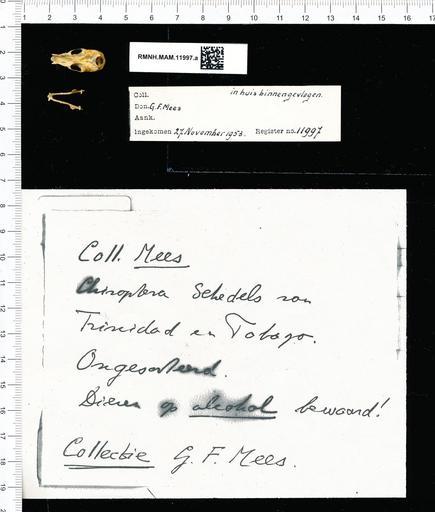 RMNH.MAM.11997.a
Coll. in huis binnengevlogen.
Don. G.F. Mees
Aank.
Ingekomen 27 November 1953. Register no. 11997
Coll. Mees
Chiroptera Schedels van
Trinidad en Tobago.
Ongesorteerd.
Dieren op alcohol bewaard!
Collectie G. F. Mees.